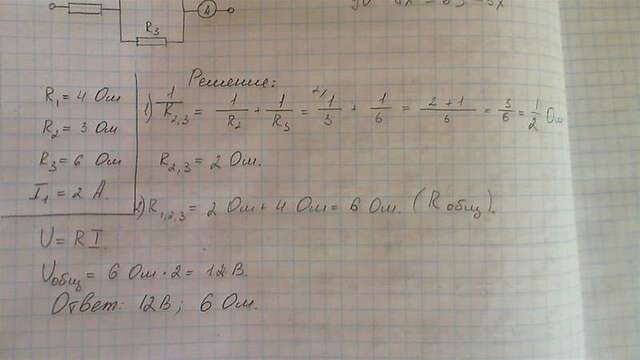 A
R3
Решение:
R1 = 4 Ом
R2 = 3 Ом
R3 = 6 Ом
I1 = 2 А.
1) 1/R2,3 = 1/R2 + 1/R3 = 2/ 1/3 + 1/6 = 2+1/6 = 3/6 = 1/2 Ом
R2,3 = 2 Ом.
2) R1,2,3 = 2 Ом + 4 Ом = 6 Ом. (Rобщ).
U = RI.
Uобщ = 6 Ом · 2 = 12 В.
Ответ: 12В; 6 Ом.